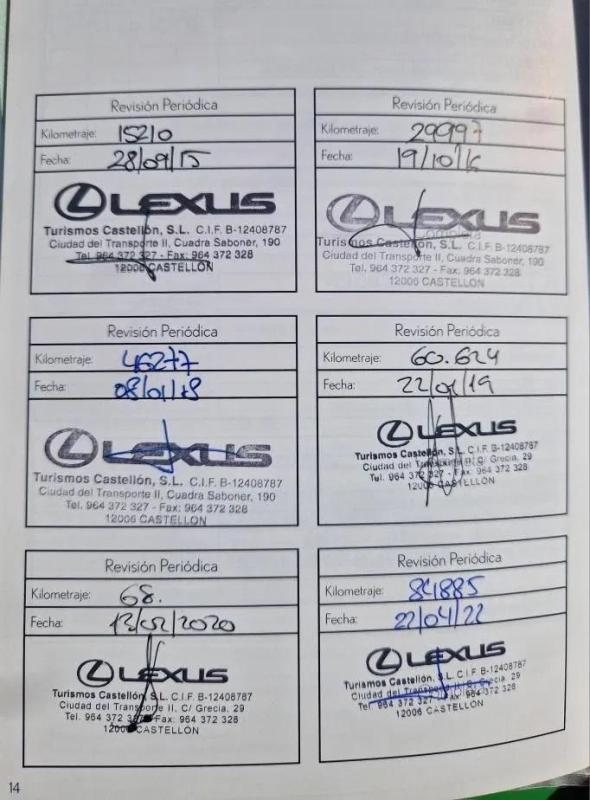 Revisión Periódica
Kilometraje: 15210
Fecha: 28/09/15
LEXUS
Turismos Castellón, S.L. C.I.F. B-12408787
Ciudad del Transporte II, Cuadra Saboner, 190
Tel. 964 372 327 - Fax: 964 372 328
12006 CASTELLON
Revisión Periódica
Kilometraje: 29997
Fecha: 19/10/16
LEXUS
Turismos Castellón, S.L. C.I.F. B-12408787
Ciudad del Transporte II, Cuadra Saboner, 190
Tel. 964 372 327 - Fax: 964 372 328
12006 CASTELLON
Revisión Periódica
Kilometraje: 46277
Fecha: 08/01/18
LEXUS
Turismos Castellón, S.L. C.I.F. B-12408787
Ciudad del Transporte II, Cuadra Saboner, 190
Tel. 964 372 327 - Fax: 964 372 328
12006 CASTELLON
Revisión Periódica
Kilometraje: 60.624
Fecha: 22/01/19
LEXUS
Turismos Castellón, S.L. C.I.F. B-12408787
Ciudad del Transporte II, C/ Grecia, 29
Tel. 964 372 327 - Fax: 964 372 328
12006 CASTELLON
Revisión Periódica
Kilometraje: 68.
Fecha: 13/02/2020
LEXUS
Turismos Castellón, S.L. C.I.F. B-12408787
Ciudad del Transporte II, C/ Grecia, 29
Tel. 964 372 327 - Fax: 964 372 328
12006 CASTELLON
Revisión Periódica
Kilometraje: 84885
Fecha: 22/04/22
LEXUS
Turismos Castellón, S.L. C.I.F. B-12408787
Ciudad del Transporte II, C/ Grecia, 29
Tel. 964 372 327 - Fax: 964 372 328
12006 CASTELLON
14